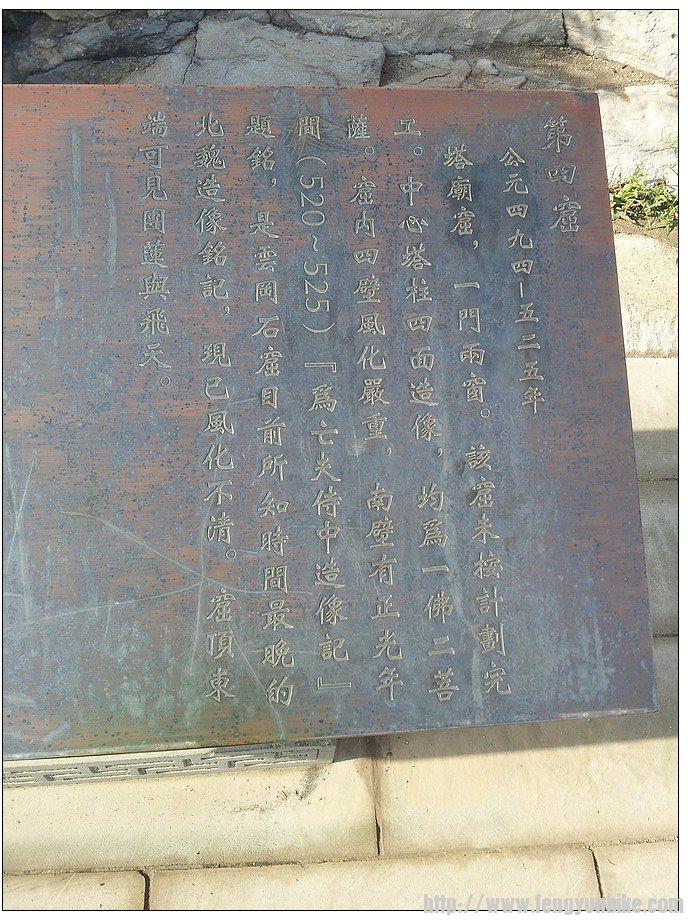 第四窟
公元四九四-五二五年
塔廟窟，一門兩窗。該窟未按計劃完
工。中心塔柱四面造像，均爲一佛二菩
薩。窟内四壁風化嚴重，南壁有正光年
間（520~525）『爲亡夫侍中造像記』
題銘，是雲岡石窟目前所知時間最晚的
北魏造像銘記，現已風化不清。窟頂東
端可見團蓮與飛天。
http://www.fengyunhike.com